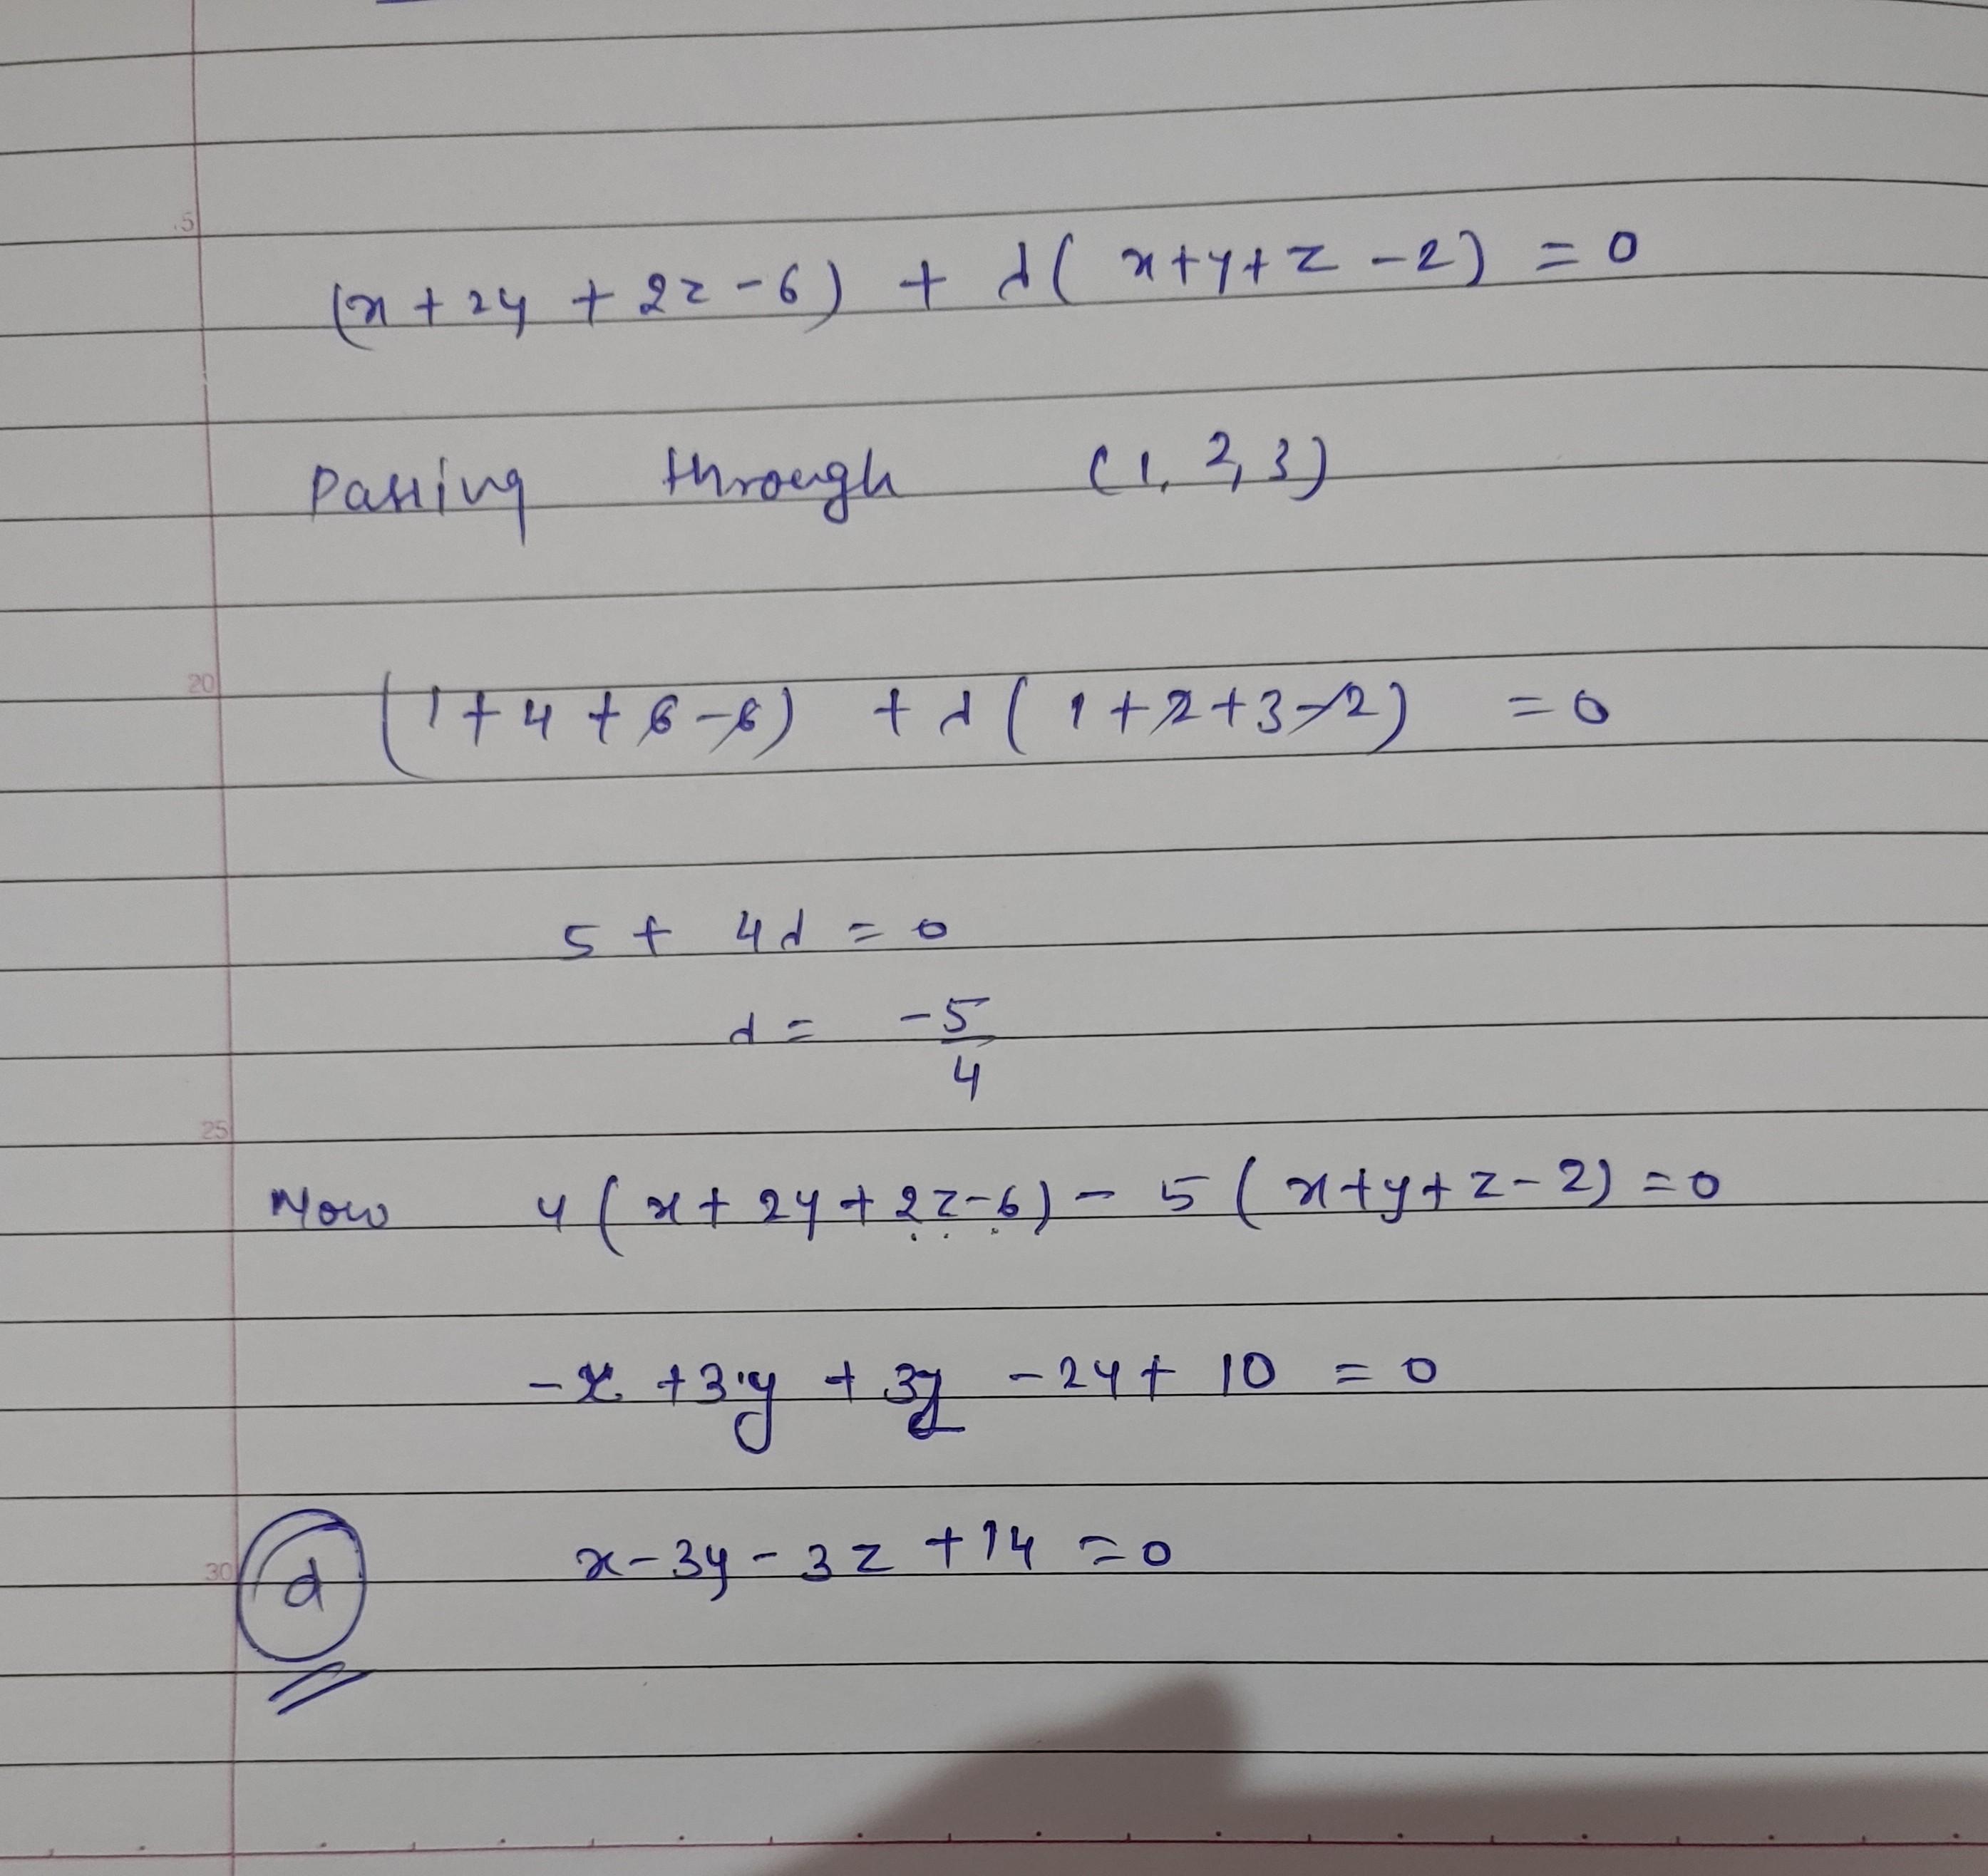 5
(x + 2y + 2z - 6) + λ( x+y+z - 2) = 0
Passing through (1, 2, 3)
20
(1 + 4 + 6 - 6) + λ( 1 + 2 + 3 - 2) = 0
5 + 4λ = 0
λ = -5/4
25
Now 4( x + 2y + 2z - 6) - 5( x+y+z - 2) = 0
-x + 3y + 3z - 24 + 10 = 0
30
d x - 3y - 3z + 14 = 0